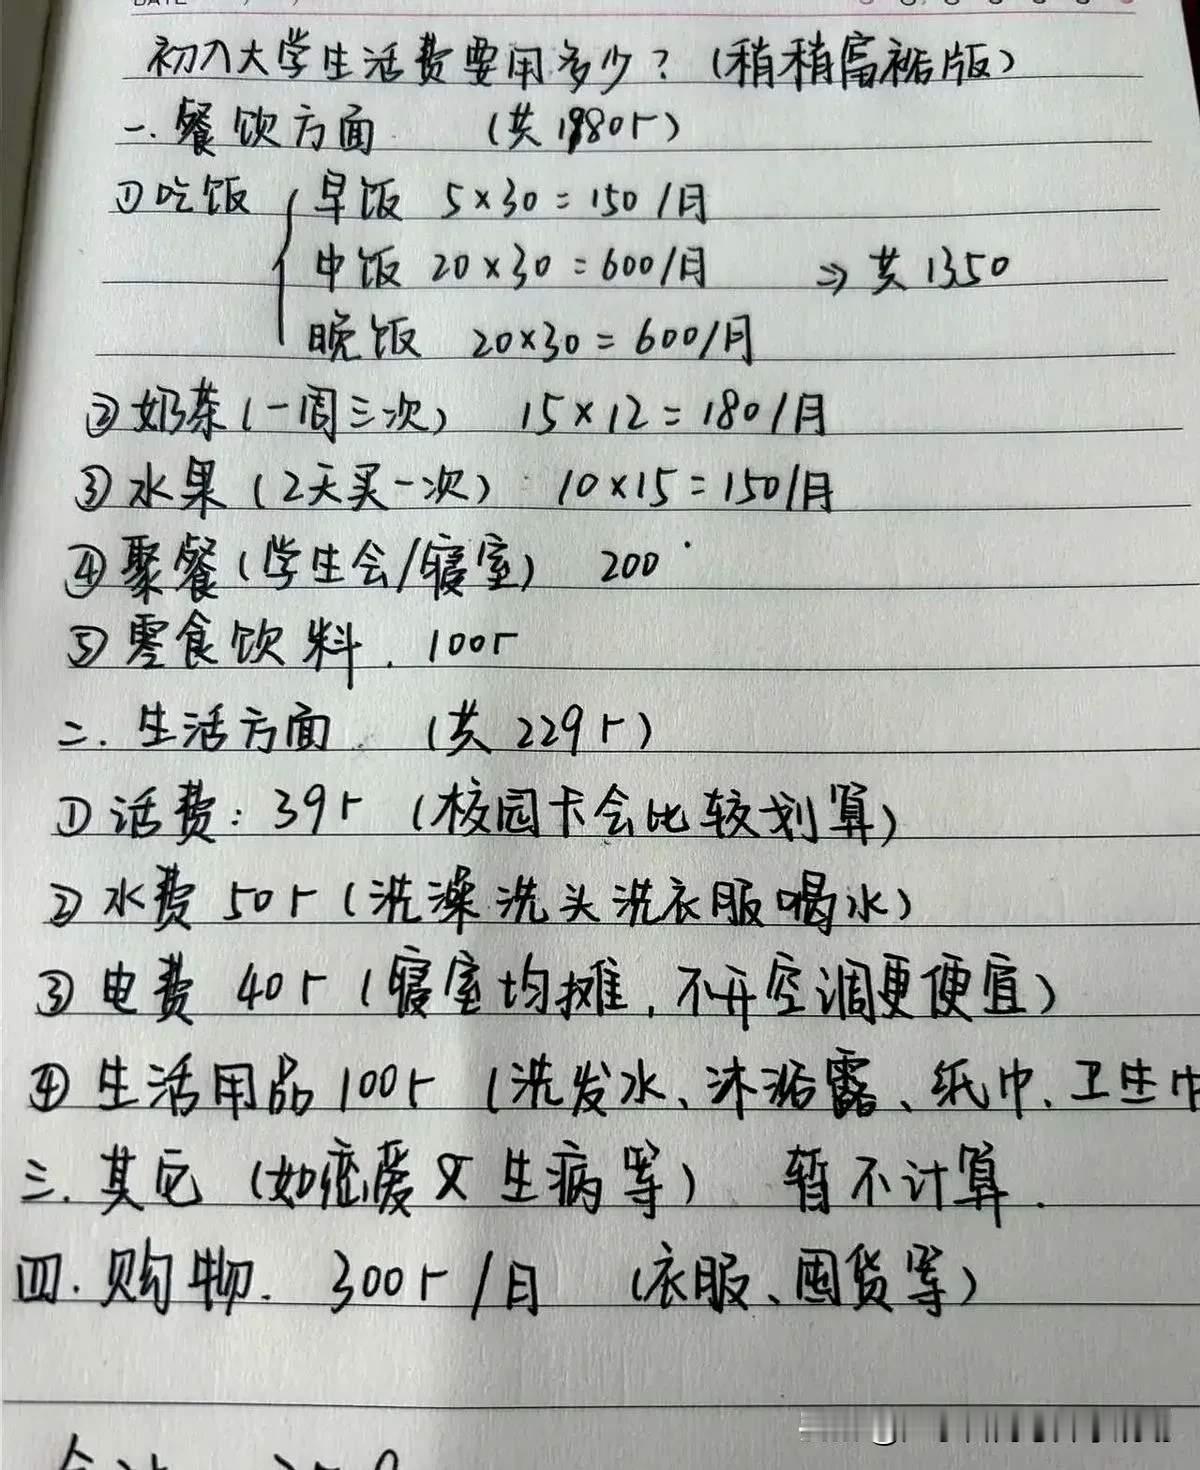 DATE
初入大学生活费要用多少？（稍稍富裕版）
一. 餐饮方面 （共1980r）
①吃饭 早饭 5×30=150/月
中饭 20×30=600/月 ⇒共1350
晚饭 20×30=600/月
②奶茶（一周三次） 15×12=180/月
③水果（2天买一次） 10×15=150/月
④聚餐（学生会/寝室） 200
⑤零食饮料. 100r
二. 生活方面 （共229r）
①话费：39r（校园卡会比较划算）
②水费 50r（洗澡洗头洗衣服喝水）
③电费 40r（寝室均摊,不开空调更便宜）
④生活用品100r（洗发水、沐浴露、纸巾、卫生巾
三. 其它（如恋爱又生病等） 暂不计算.
四. 购物. 300r/月 （衣服、囤货等）